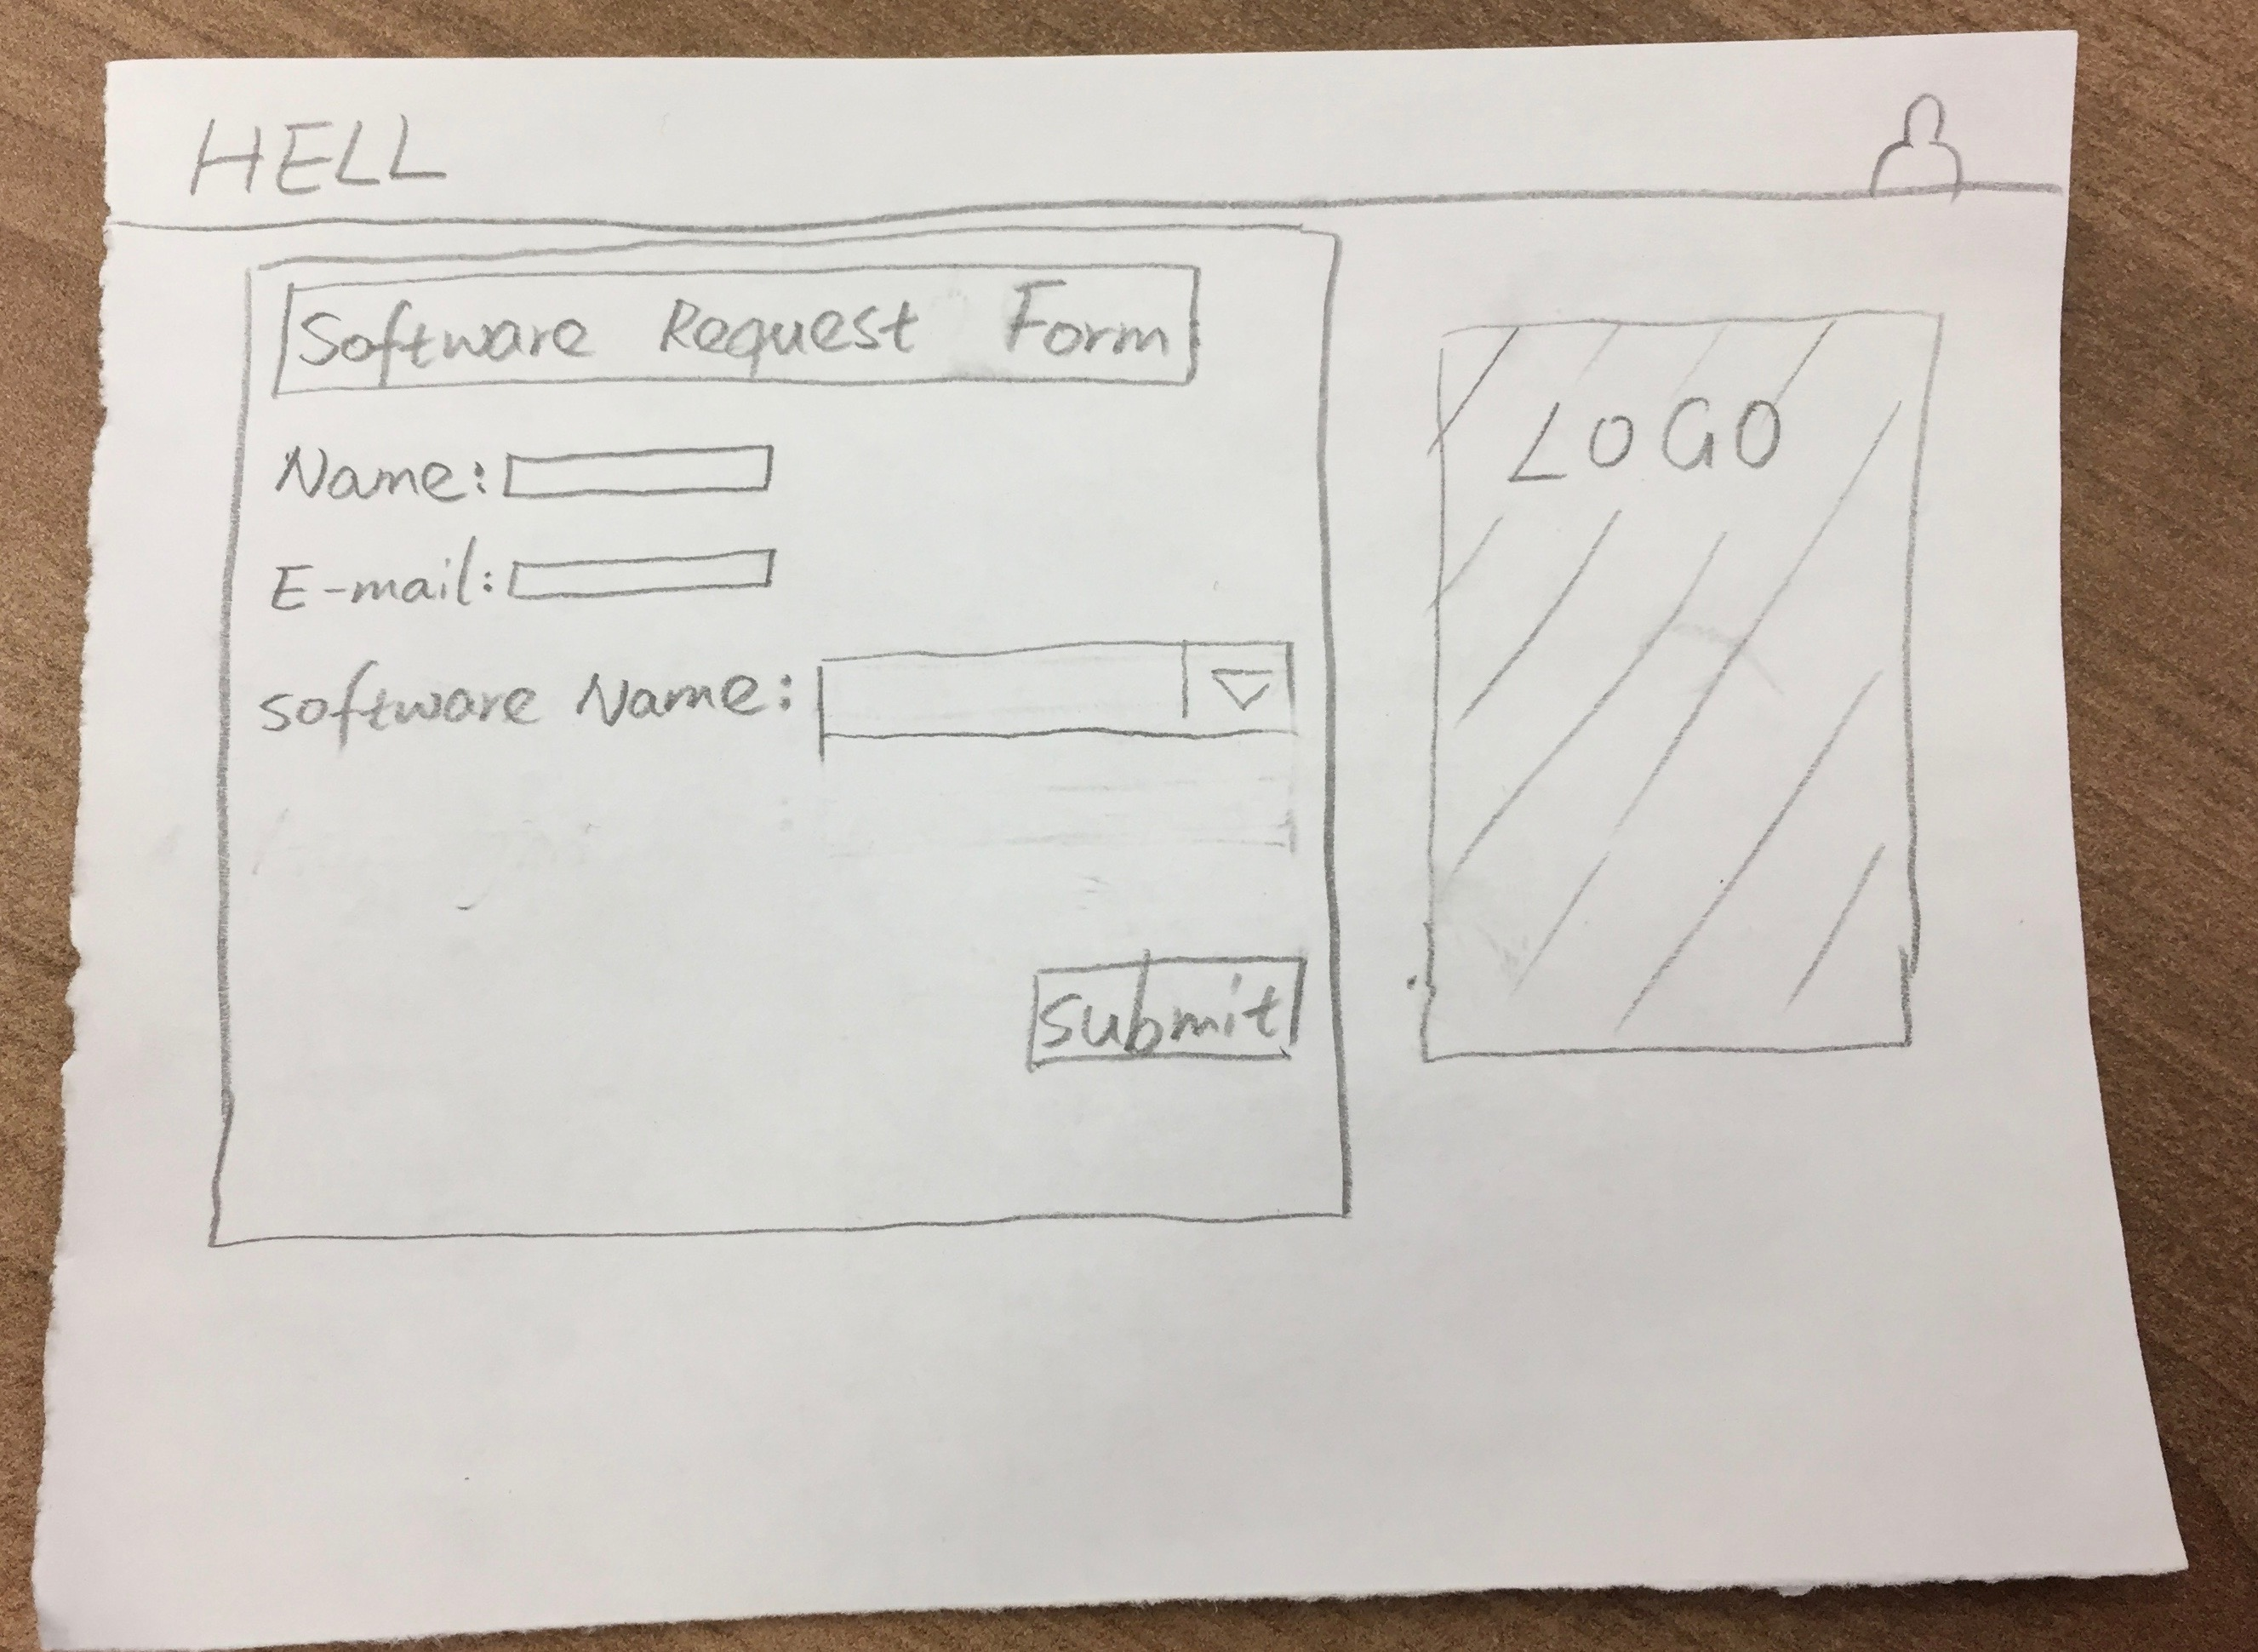 HELL
Software Request Form
LOGO
Name:
E-mail:
software Name:
submit